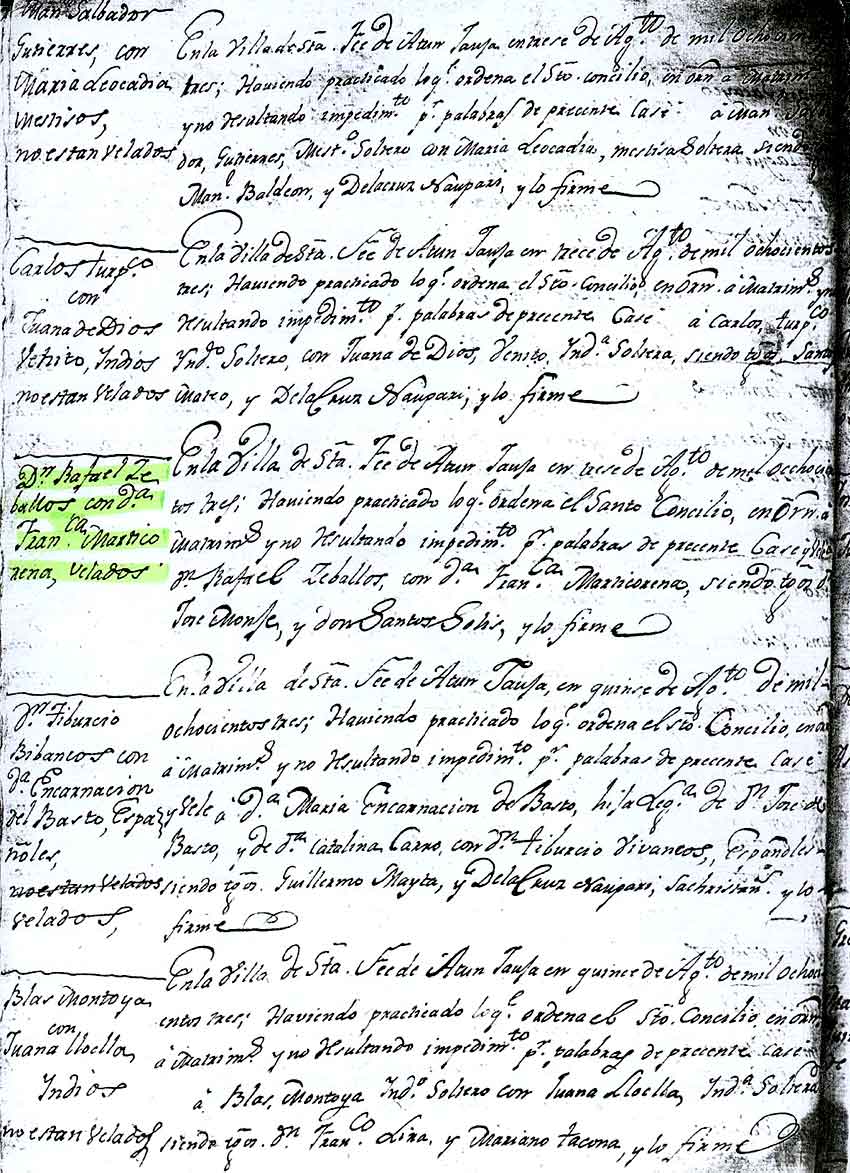 Man.l Salbador
Gutierres, con
Maria Leocadia
Mestisos,
no estan Velados
En la Villa de Sta. Fee de Atun Jauja en trese de Ag.to de mil ochocien
tres; Haviendo practicado loq.e ordena el Sto. Concilio, en orn. a Matrim
y no resultando impedim.to p.r palabras de precente Casé á Man. Salv
dor, Gutierres, Mest.o Soltero con Maria Leocadia, mestisa Soltera, siendo
Man.l Baldeon, y Delacruz Ñaupari, y lo firme
Carlos turp.co
con
Juana de Dios
Venito, Indios
no estan Velados
En la Villa de Sta. Fee de Atun Jauja en trece de Ag.to de mil ochocientos
tres; Haviendo practicado loq.e ordena el Sto. Concilio, en orn. á Matrim.o y no
resultando impedim.to p.r palabras de precente Casé á Carlos, turp.co
Ynd.o Soltero, con Juana de Dios, Venito, Ind.a Soltera, siendo tgos. Santos
Mateo, y Dela Cruz Ñaupari; y lo firme
D.n Rafael Ze
ballos, con d.a
Fran.ca Martico
rena, Velados
En la Villa de Sta. Fee de Atun Jauja en trese de Ag.to de mil ochocien
tos tres; Haviendo practicado loq.e ordena el Santo Concilio, en orn. á
Matrim.o y no resultando impedim.to p.r palabras de precente Casé y Velé
d.n Rafael Zeballos, con d.a Fran.ca Marticorena, siendo tgos. d.n
Jose Monje, y don Santos Solis, y lo firme
d.n Tiburcio
Bibancos con
d.a Encarnacion
del Basto, Espa
ñoles,
no estan Velados
Velados,
En la Villa de Sta. Fee de Atun Jauja, en quinse de Ag.to de mil
ochocientos tres; Haviendo practicado loq.e ordena el sto. Concilio, en orn
á Matrim.o y no resultando impedim.to p.r palabras de precente Casé
y Velé á d.a Maria Encarnacion de Basto, hija Leg.a de d.n Jose de
Basto, y de d.a Catalina Carro, con d.n tiburcio Vivancos, Españoles
siendo tgos. Guillermo Mayta, y Dela Cruz Ñaupari, Sachristan.s y lo
firme
Blas Montoya
con
Juana Lloclla
Indios
no estan Velados
En la Villa de Sta. Fee de Atun Jauja en quince de Ag.to de mil ochoci
entos tres; Haviendo practicado loq.e ordena el Sto. Concilio en orn
á Matrim.o y no resultando impedim.to p.r palabras de precente Casé
á Blas, Montoya Ind.o Soltero con Juana Lloclla, Ind.a Soltera
siendo tgos. d.n Fran.co Lira, y Mariano tacona, y lo firme